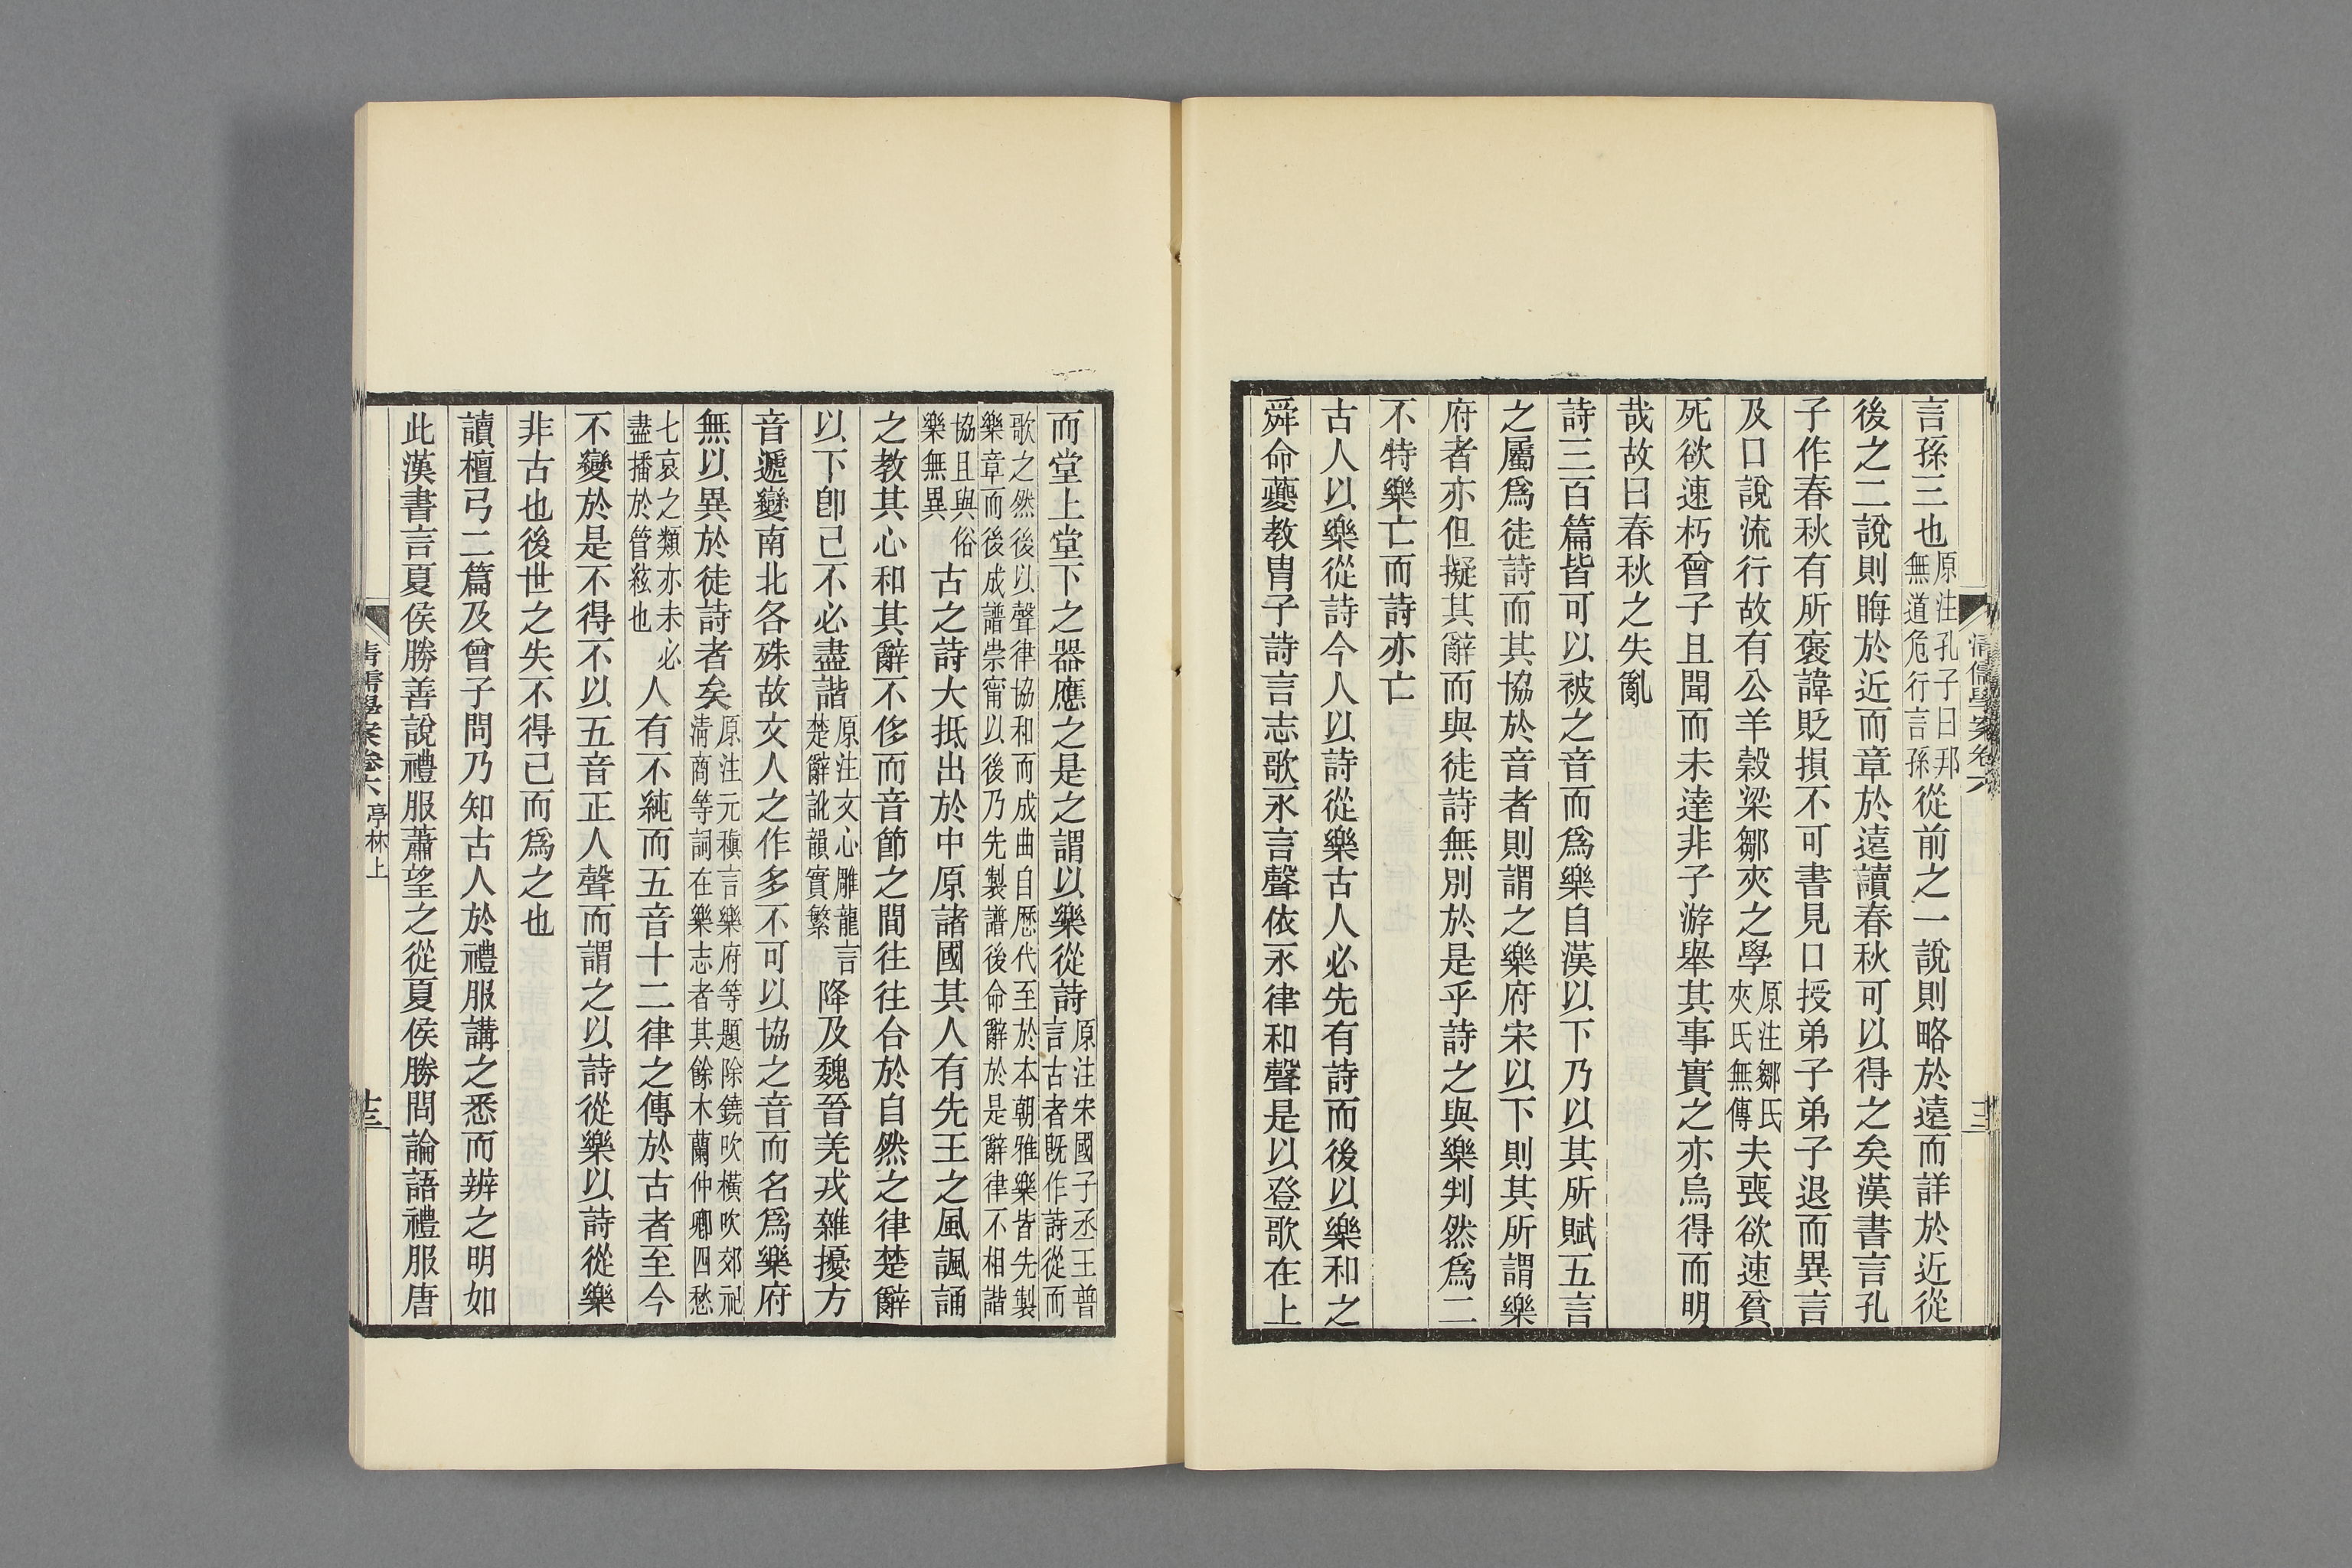 清儒學案卷六
言孫三也原注孔子曰邦無道危行言孫從前之一說則略於遠而詳於近從
後之二說則晦於近而章於遠讀春秋可以得之矣漢書言孔
子作春秋有所褒諱貶損不可書見口授弟子弟子退而異言
及口說流行故有公羊穀梁鄒夾之學原注鄒氏夾氏無傳夫喪欲速貧
死欲速朽曾子且聞而未達非子游舉其事實之亦烏得而明
哉故曰春秋之失亂
詩三百篇皆可以被之音而爲樂自漢以下乃以其所賦五言
之屬爲徒詩而其協於音者則謂之樂府宋以下則其所謂樂
府者亦但擬其辭而與徒詩無別於是乎詩之與樂判然爲二
不特樂亡而詩亦亡
古人以樂從詩今人以詩從樂古人必先有詩而後以樂和之
舜命夔教胄子詩言志歌永言聲依永律和聲是以登歌在上
而堂上堂下之器應之是之謂以樂從詩原注宋國子丞王普言古者旣作詩從而
歌之然後以聲律協和而成曲自歷代至於本朝雅樂皆先製樂章而後成譜崇甯以後乃先製譜後命辭於是辭律不相諧
協且與俗樂無異古之詩大抵出於中原諸國其人有先王之風諷誦
之教其心和其辭不侈而音節之間往往合於自然之律楚辭
以下卽已不必盡諧原注文心雕龍言楚辭訛韻實繁降及魏晉羌戎雜擾方
音遞變南北各殊故文人之作多不可以協之音而名爲樂府
無以異於徒詩者矣原注元稹言樂府等題除鐃吹橫吹郊祀清商等詞在樂志者其餘木蘭仲卿四愁
七哀之類亦未必盡播於管絃也人有不純而五音十二律之傳於古者至今
不變於是不得不以五音正人聲而謂之以詩從樂以詩從樂
非古也後世之失不得已而爲之也
讀檀弓二篇及曾子問乃知古人於禮服講之悉而辨之明如
此漢書言夏侯勝善說禮服蕭望之從夏侯勝問論語禮服唐
清儒學案卷六 亭林上 十三